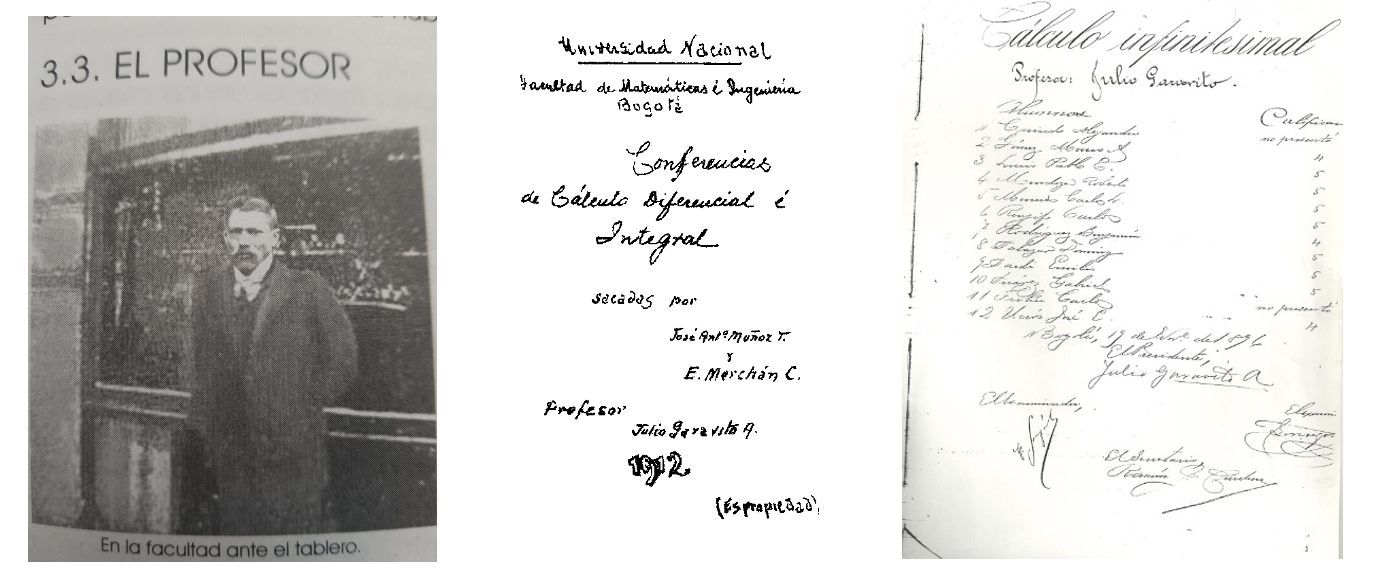 3.3. EL PROFESOR
En la facultad ante el tablero.
Universidad Nacional
Facultad de Matemáticas é Ingeniería
Bogotá
Conferencias
de Cálculo Diferencial é
Integral
sacadas por
José Antº Muñoz T.
y
E. Merchán C.
Profesor
Julio Garavito A.
1912.
(Es propiedad)
Cálculo infinitesimal
Profesor: Julio Garavito.
Alumnos Calificac
1 Alejandro no presentó
2 Gómez Marco A 4
3 Pablo E. 5
4 Mendoza Roberto 5
5 Carlos 5
6 Rengifo Carlos 5
7 Rodríguez Benjamín 4
8 Salazar Domingo 5
9 Emilio 5
10 Suárez Gabriel 5
11 Carlos no presentó
12 José C. 4
Bogotá, 19 de de 1896
El Presidente,
Julio Garavito A.
El examinador,
El Secretario,
Ramón